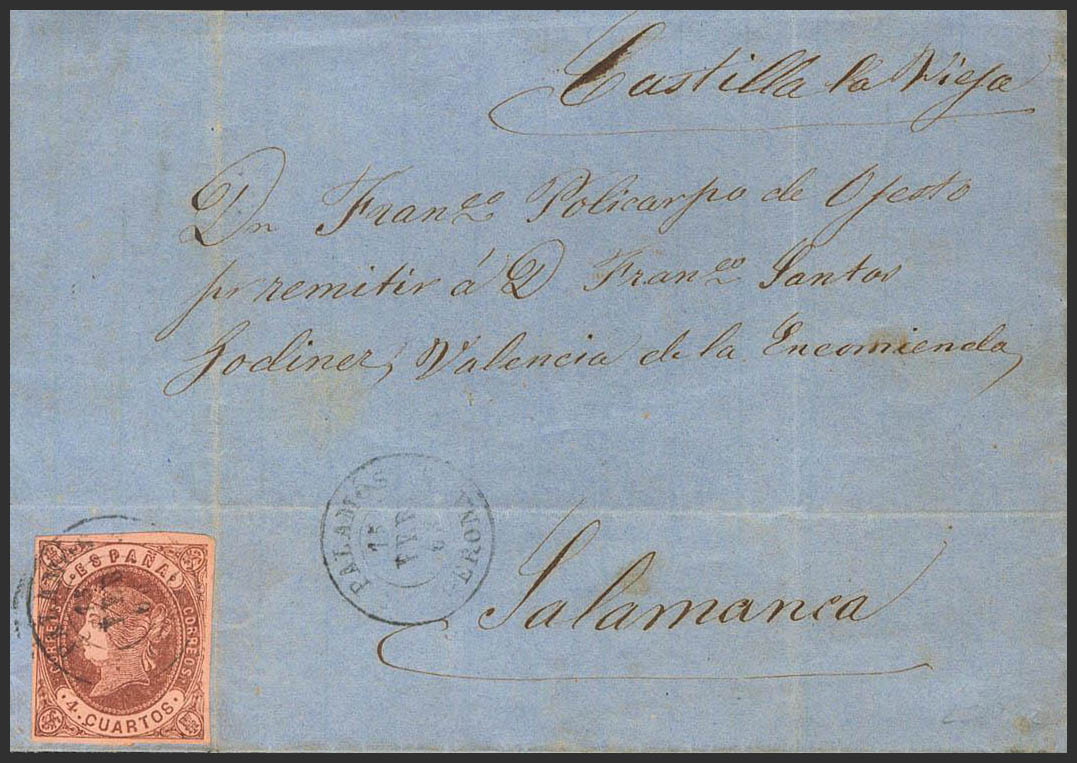 Castilla la Vieja
Dn Franco Policarpo de Ojesto
pr remitir á D Franco Santos
Godinez, Valencia de la Encomienda,
Salamanca
PALAMOS
15
GERONA
ESPAÑA
CORREOS
CORREOS
4 CUARTOS.